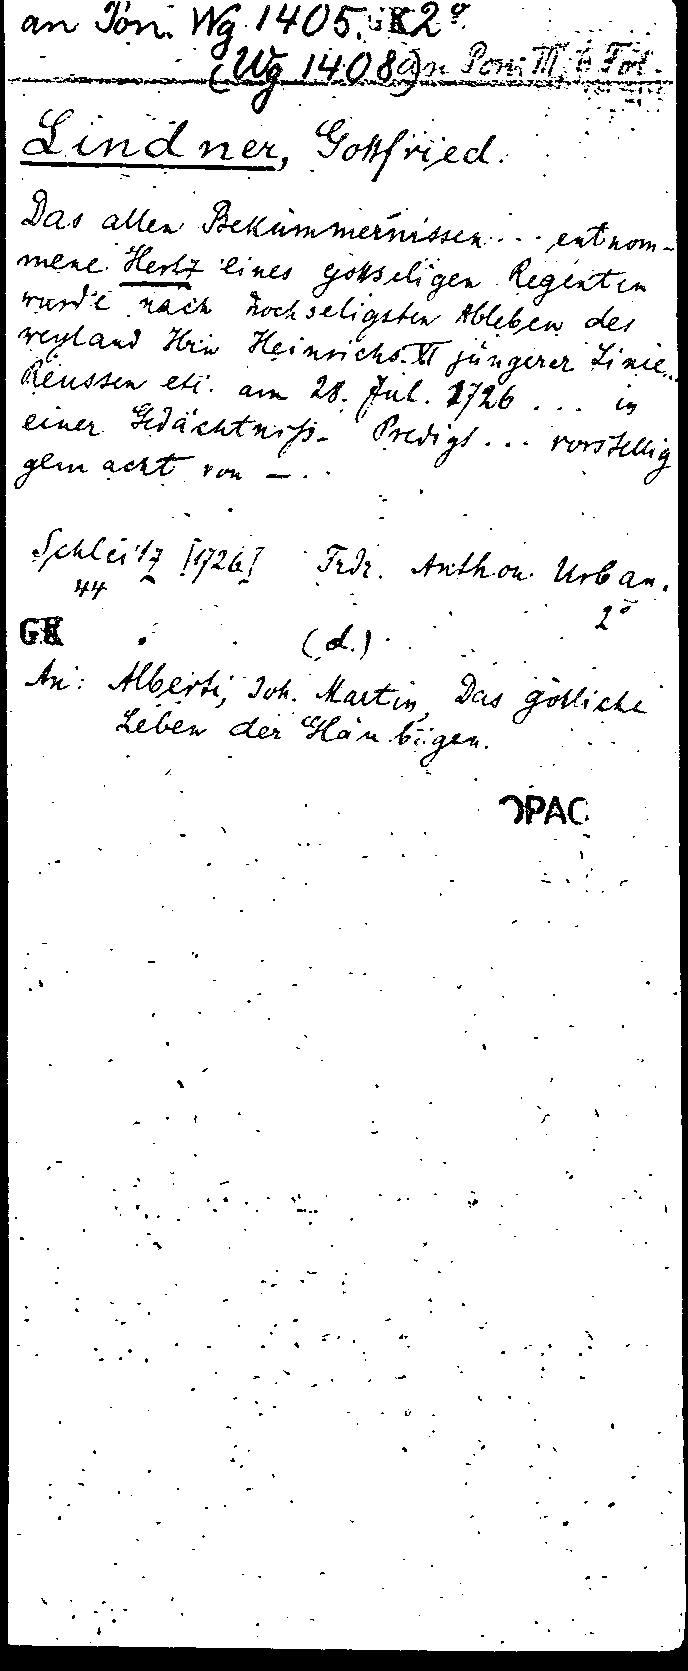 an Pon. Wg 1405. GK 2°
(Wg 1408a) an Pon. III, 6 Fol.
Lindner, Gottfried.
Das allen Bekümmernissen ... entnom-
mene Hertz eines gottseligen Regenten
wurde nach hochseligsten Ableben des
weyland Hrn Heinrichs XI jüngerer Linie..
Reussen etc. am 28. Jul. 1726 ... in
einer Gedächtniß- Predigt ... vorstellig
gemacht von — .
Schleitz [1726] Frdr. Anthon Urban.
44
2°
GK (d.)
An: Alberti, Joh. Martin, Das göttliche
Leben der Gläubigen.
OPAC